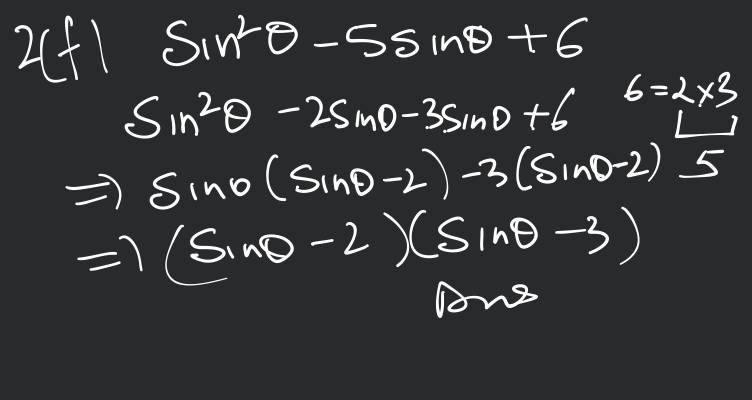 2(f) Sin²θ - 5sinθ + 6
Sin²θ - 2sinθ - 3sinθ + 6
6 = 2 × 3
5
⇒ Sinθ (Sinθ - 2) - 3 (Sinθ - 2)
⇒ (Sinθ - 2) (Sinθ - 3)
Ans